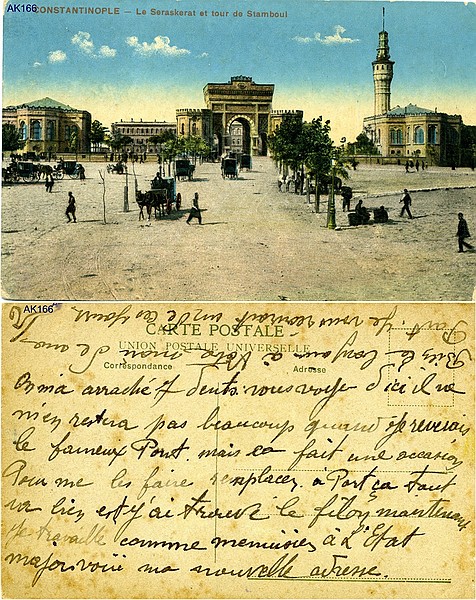 AK166
CONSTANTINOPLE – Le Seraskerat et tour de Stamboul
AK166
CARTE POSTALE
UNION POSTALE UNIVERSELLE
Correspondance
Adresse
On m'a arraché 7 dents. vous voyez d'ici il va
m'en restera pas beaucoup quand je reverrai
le fameux Pont. mais ça fait une occasion
Pour me les faire remplacer. à Part ça tout
va bien est j'ai trouvé le filon maintenant
je travaille comme menuisier à L'Etat
major voici ma nouvelle adresse.